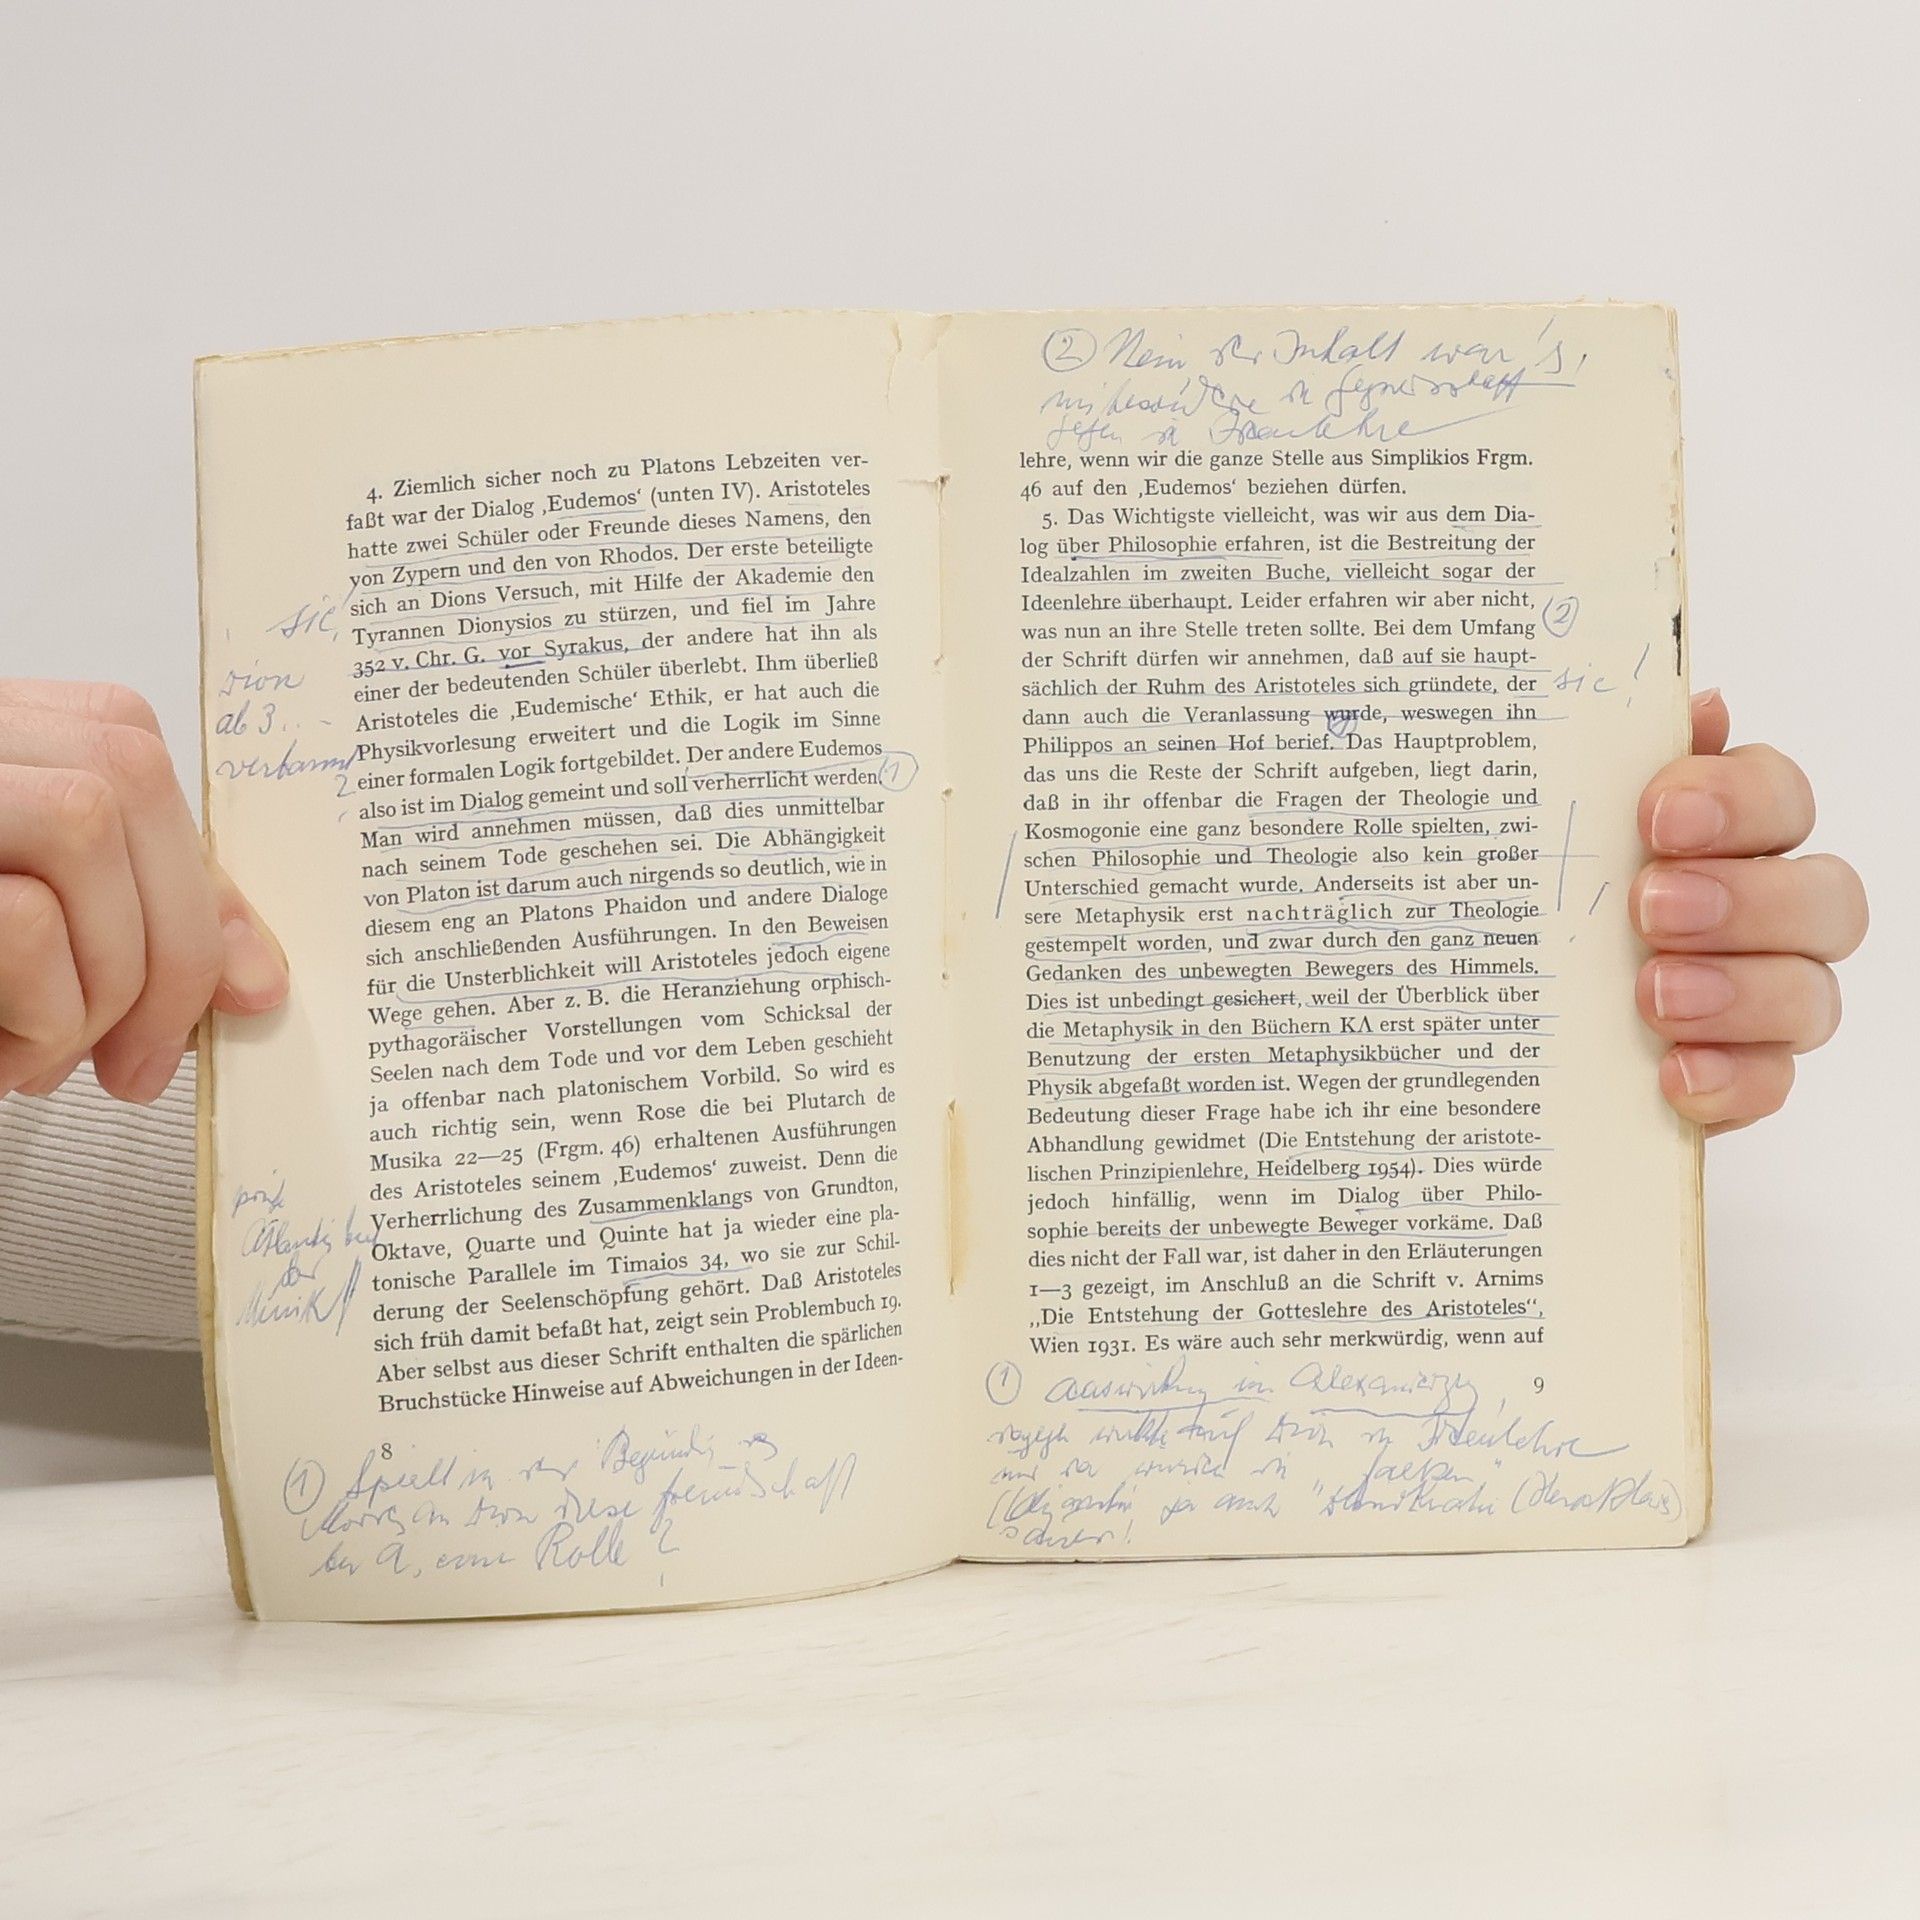 4. Ziemlich sicher noch zu Platons Lebzeiten ver-
faßt war der Dialog ‚Eudemos‘ (unten IV). Aristoteles
hatte zwei Schüler oder Freunde dieses Namens, den
von Zypern und den von Rhodos. Der erste beteiligte
sich an Dions Versuch, mit Hilfe der Akademie den
Tyrannen Dionysios zu stürzen, und fiel im Jahre
352 v. Chr. G. vor Syrakus, der andere hat ihn als
einer der bedeutenden Schüler überlebt. Ihm überließ
Aristoteles die ‚Eudemische‘ Ethik, er hat auch die
Physikvorlesung erweitert und die Logik im Sinne
einer formalen Logik fortgebildet. Der andere Eudemos
also ist im Dialog gemeint und soll verherrlicht werden.
Man wird annehmen müssen, daß dies unmittelbar
nach seinem Tode geschehen sei. Die Abhängigkeit
von Platon ist darum auch nirgends so deutlich, wie in
diesem eng an Platons Phaidon und andere Dialoge
sich anschließenden Ausführungen. In den Beweisen
für die Unsterblichkeit will Aristoteles jedoch eigene
Wege gehen. Aber z. B. die Heranziehung orphisch-
pythagoräischer Vorstellungen vom Schicksal der
Seelen nach dem Tode und vor dem Leben geschieht
ja offenbar nach platonischem Vorbild. So wird es
auch richtig sein, wenn Rose die bei Plutarch de
Musika 22—25 (Frgm. 46) erhaltenen Ausführungen
des Aristoteles seinem ‚Eudemos‘ zuweist. Denn die
Verherrlichung des Zusammenklangs von Grundton,
Oktave, Quarte und Quinte hat ja wieder eine pla-
tonische Parallele im Timaios 34, wo sie zur Schil-
derung der Seelenschöpfung gehört. Daß Aristoteles
sich früh damit befaßt hat, zeigt sein Problembuch 19.
Aber selbst aus dieser Schrift enthalten die spärlichen
Bruchstücke Hinweise auf Abweichungen in der Ideen-
8
sic
Dion
ab 3
verbannt
?
der
Musik
1
1 Spielt
diese Freundschaft
bei A. eine Rolle?
2 Nein der Inhalt war's,
insbesondere die Gegnerschaft
gegen die Ideenlehre
lehre, wenn wir die ganze Stelle aus Simplikios Frgm.
46 auf den ‚Eudemos‘ beziehen dürfen.
5. Das Wichtigste vielleicht, was wir aus dem Dia-
log über Philosophie erfahren, ist die Bestreitung der
Idealzahlen im zweiten Buche, vielleicht sogar der
Ideenlehre überhaupt. Leider erfahren wir aber nicht,
was nun an ihre Stelle treten sollte. Bei dem Umfang 2
der Schrift dürfen wir annehmen, daß auf sie haupt-
sächlich der Ruhm des Aristoteles sich gründete, der sic!
dann auch die Veranlassung wurde, weswegen ihn
Philippos an seinen Hof berief. Das Hauptproblem,
das uns die Reste der Schrift aufgeben, liegt darin,
daß in ihr offenbar die Fragen der Theologie und
Kosmogonie eine ganz besondere Rolle spielten, zwi-
schen Philosophie und Theologie also kein großer
Unterschied gemacht wurde. Anderseits ist aber un-
sere Metaphysik erst nachträglich zur Theologie
gestempelt worden, und zwar durch den ganz neuen
Gedanken des unbewegten Bewegers des Himmels.
Dies ist unbedingt gesichert, weil der Überblick über
die Metaphysik in den Büchern ΚΛ erst später unter
Benutzung der ersten Metaphysikbücher und der
Physik abgefaßt worden ist. Wegen der grundlegenden
Bedeutung dieser Frage habe ich ihr eine besondere
Abhandlung gewidmet (Die Entstehung der aristote-
lischen Prinzipienlehre, Heidelberg 1954). Dies würde
jedoch hinfällig, wenn im Dialog über Philo-
sophie bereits der unbewegte Beweger vorkäme. Daß
dies nicht der Fall war, ist daher in den Erläuterungen
1—3 gezeigt, im Anschluß an die Schrift v. Arnims
„Die Entstehung der Gotteslehre des Aristoteles“,
Wien 1931. Es wäre auch sehr merkwürdig, wenn auf
9
1 Auswirkung im Alexanderzug
Ideenlehre